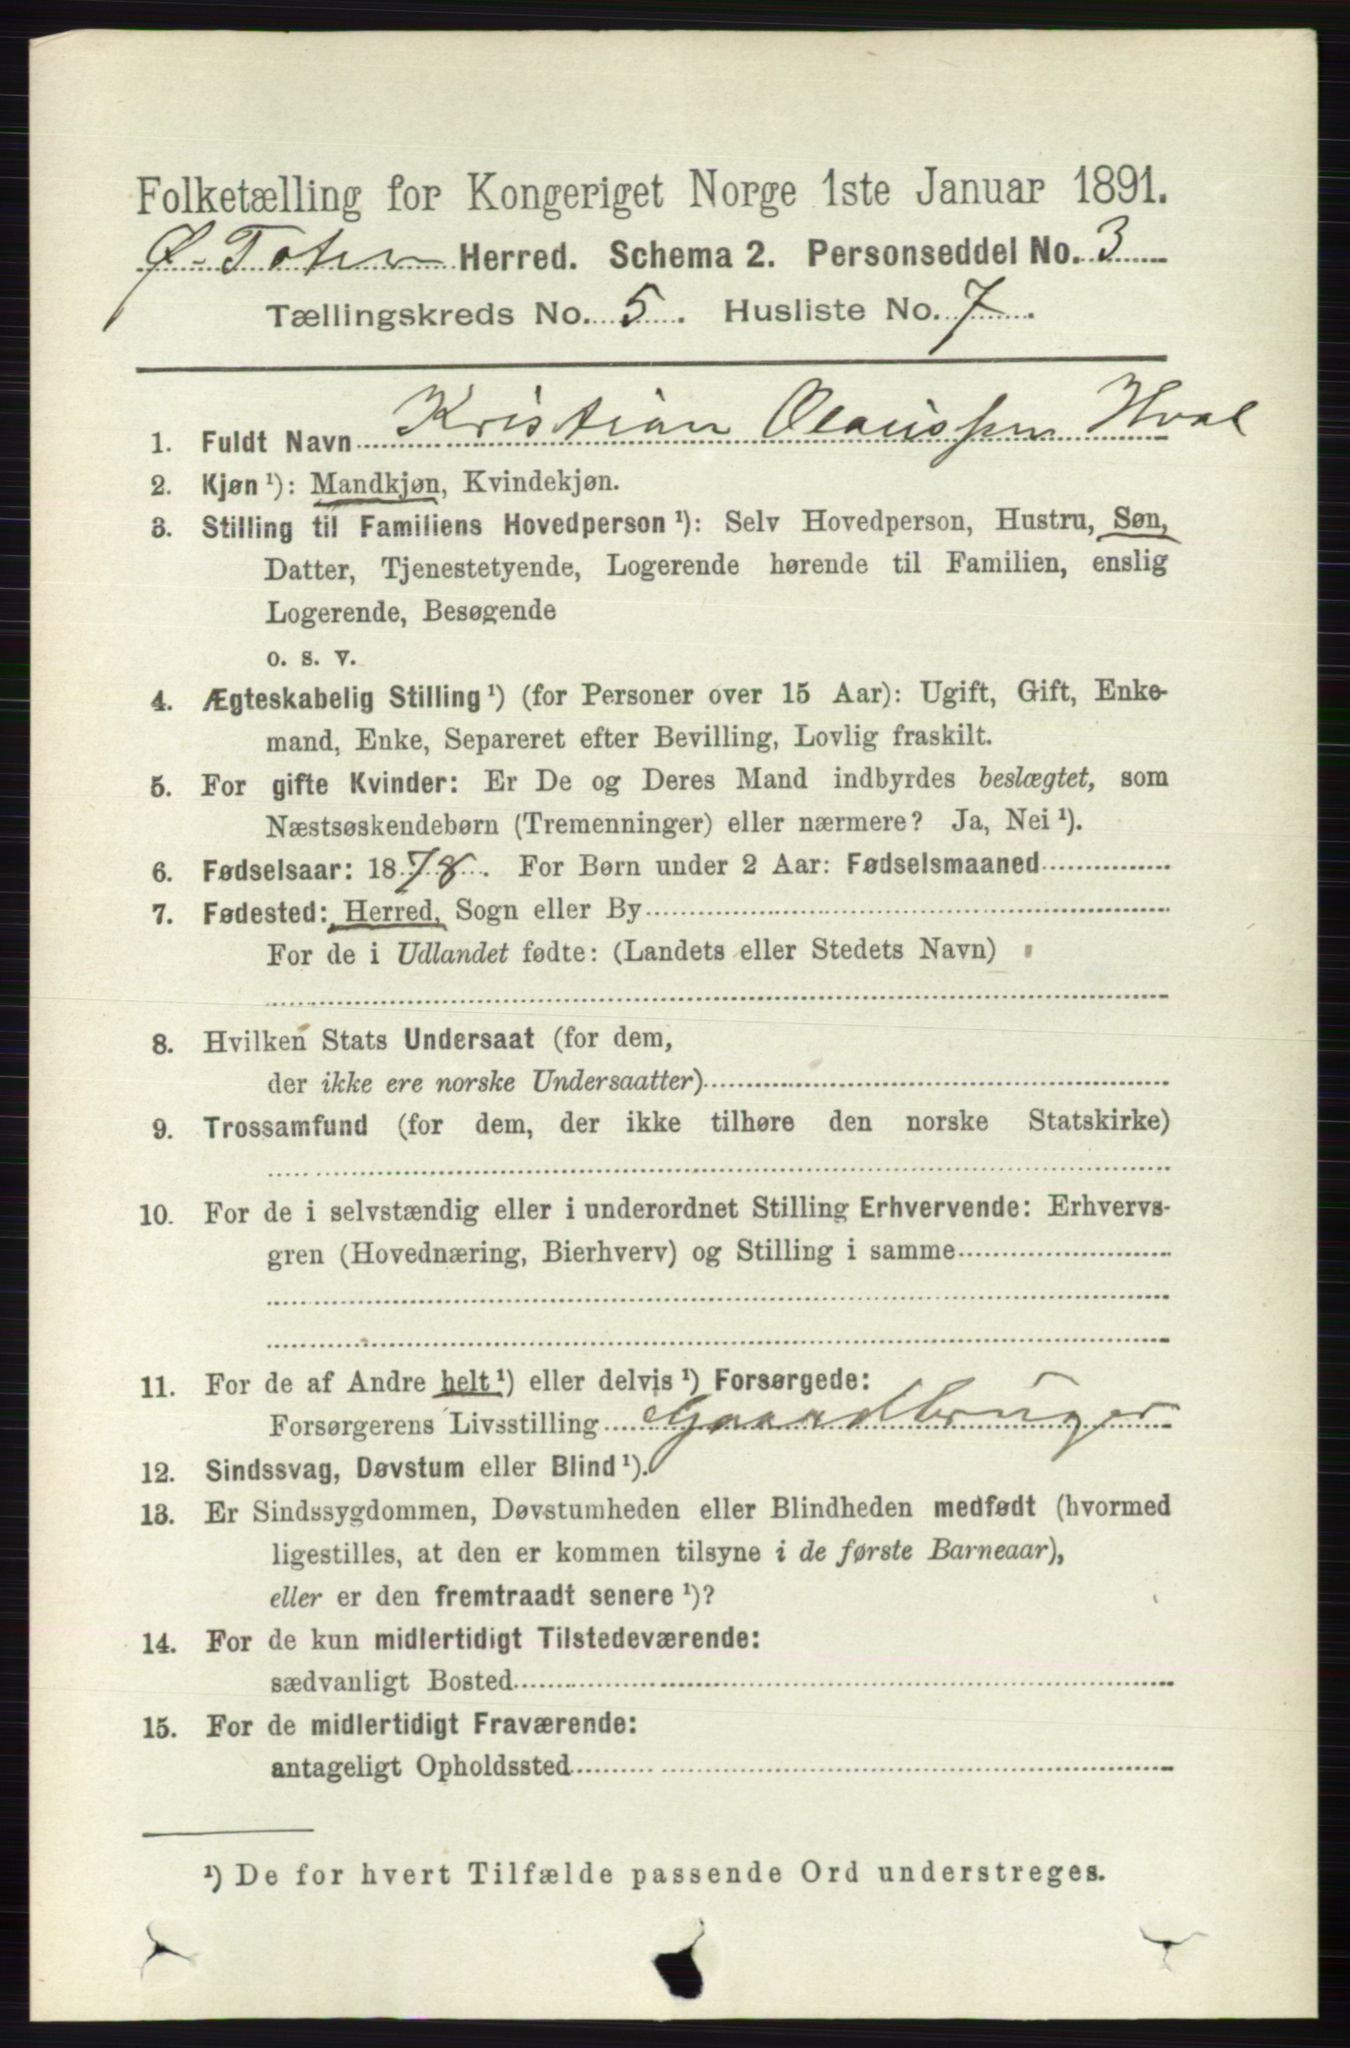 Folketælling for Kongeriget Norge 1ste Januar 1891.
Ø. Toten Herred. Schema 2. Personseddel No. 3
Tællingskreds No. 5. Husliste No. 7.
1. Fuldt Navn Kristian Olaussen Hval
2. Kjøn ¹): Mandkjøn, Kvindekjøn.
3. Stilling til Familiens Hovedperson ¹): Selv Hovedperson, Hustru, Søn,
Datter, Tjenestetyende, Logerende hørende til Familien, enslig
Logerende, Besøgende
o. s. v.
4. Ægteskabelig Stilling ¹) (for Personer over 15 Aar): Ugift, Gift, Enke-
mand, Enke, Separeret efter Bevilling, Lovlig fraskilt.
5. For gifte Kvinder: Er De og Deres Mand indbyrdes beslægtet, som
Næstsøskendebørn (Tremenninger) eller nærmere? Ja, Nei ¹).
6. Fødselsaar: 1878. For Børn under 2 Aar: Fødselsmaaned
7. Fødested: Herred, Sogn eller By
For de i Udlandet fødte: (Landets eller Stedets Navn)
8. Hvilken Stats Undersaat (for dem,
der ikke ere norske Undersaatter)
9. Trossamfund (for dem, der ikke tilhøre den norske Statskirke)
10. For de i selvstændig eller i underordnet Stilling Erhvervende: Erhvervs-
gren (Hovednæring, Bierhverv) og Stilling i samme
11. For de af Andre helt ¹) eller delvis ¹) Forsørgede:
Forsørgerens Livsstilling Gaardbruger
12. Sindssvag, Døvstum eller Blind ¹).
13. Er Sindssygdommen, Døvstumheden eller Blindheden medfødt (hvormed
ligestilles, at den er kommen tilsyne i de første Barneaar),
eller er den fremtraadt senere ¹)?
14. For de kun midlertidigt Tilstedeværende:
sædvanligt Bosted
15. For de midlertidigt Fraværende:
antageligt Opholdssted
¹) De for hvert Tilfælde passende Ord understreges.